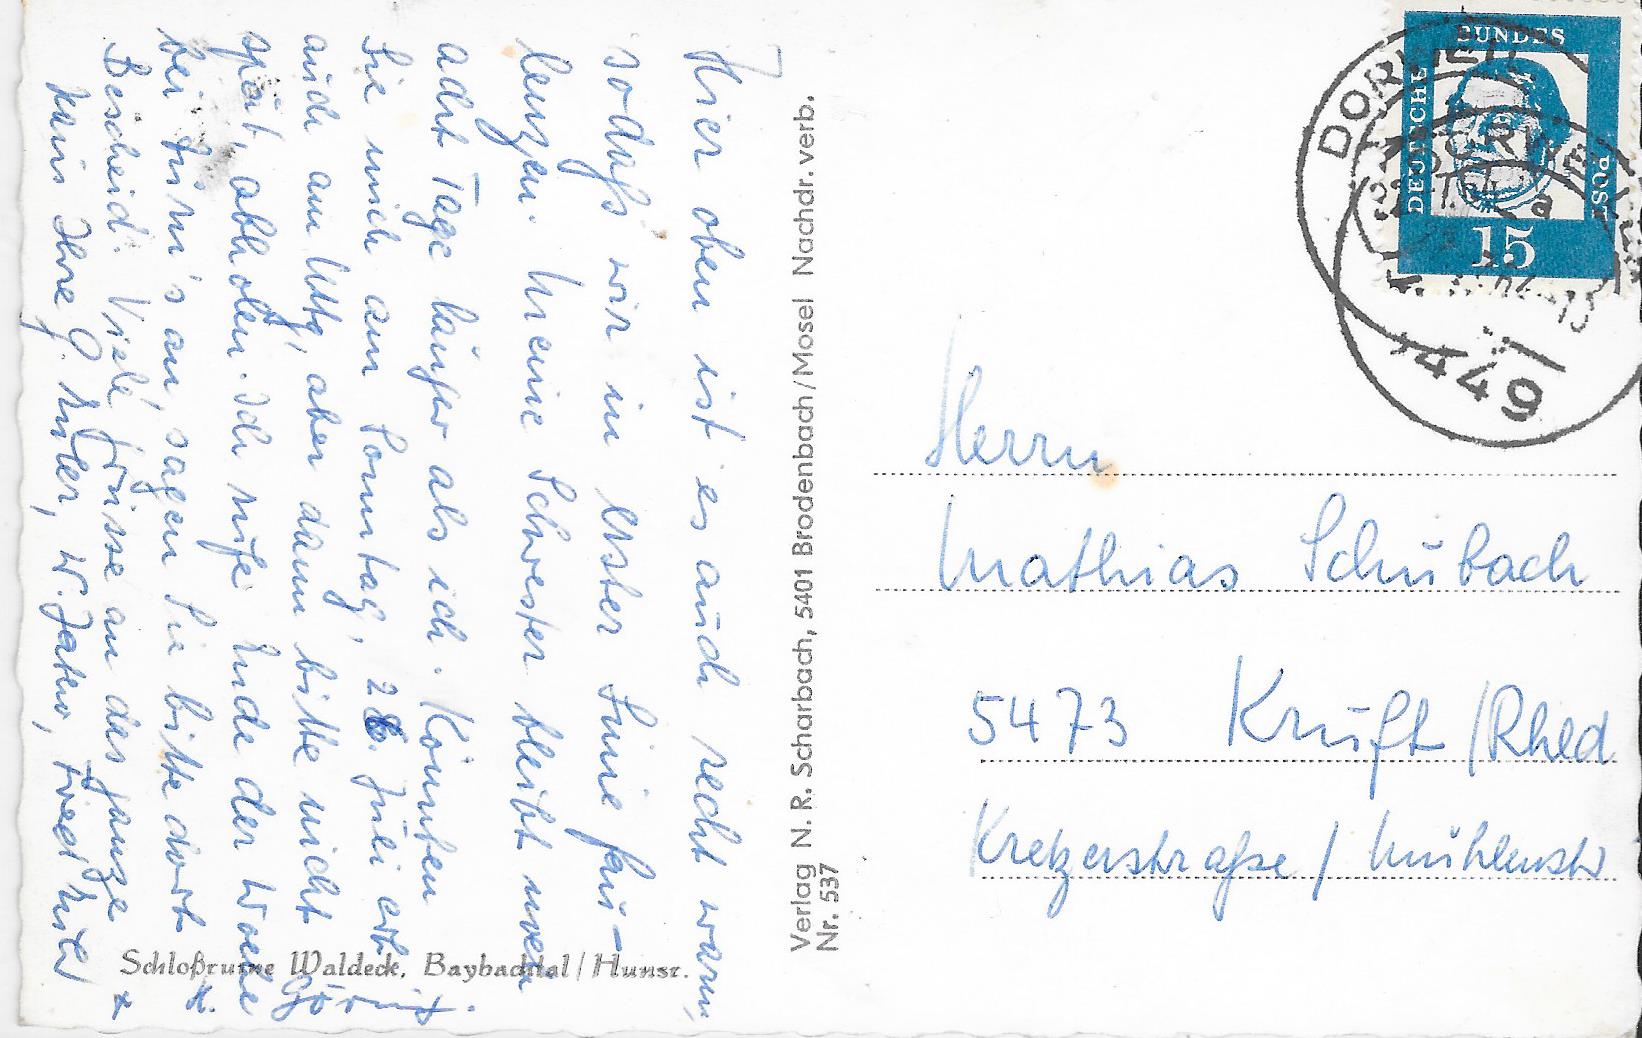 Hier oben ist es auch recht warm,
sodaß wir in erster Linie fau-
lenzen. Meine Schwester bleibt noch
acht Tage länger als ich. Könnten
Sie mich am Sonntag, 26. Juli
auch am Mttg, aber dann bitte nicht
spät, abholen. Ich rufe Ende der Woche
bei an, sagen Sie bitte dort
Bescheid. Viele Grüsse an das ganze
Ihre
Schloßruine Waldeck, Baybachtal/Hunsr.
Verlag N. R. Scharbach, 5401 Brodenbach/Mosel Nachdr. verb.
Nr. 537
DEUTSCHE
BUNDES
POST
15
DORWEILER
a
449
Herrn
Mathias Schubach
5473 Kruft /Rhld
Kretzerstraße / Mühlenstr